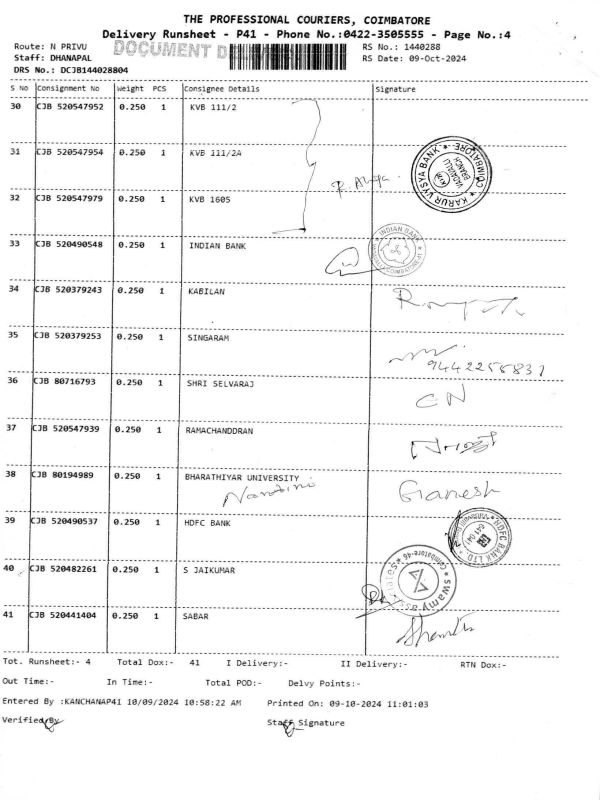 THE PROFESSIONAL COURIERS, COIMBATORE
Delivery Runsheet - P41 - Phone No.:0422-3505555 - Page No.:4
Route: N PRIVU DOCUMENT RS No.: 1440288
Staff: DHANAPAL RS Date: 09-Oct-2024
DRS No.: DCJB144028804
S No Consignment No Weight PCS Consignee Details Signature
30 CJB 520547952 0.250 1 KVB 111/2
31 CJB 520547954 0.250 1 KVB 111/2A
KARUR VYSYA BANK * COIMBATORE * VADAVALLI BRANCH KVB
32 CJB 520547979 0.250 1 KVB 1605
33 CJB 520490548 0.250 1 INDIAN BANK
INDIAN BANK
34 CJB 520379243 0.250 1 KABILAN
35 CJB 520379253 0.250 1 SINGARAM
36 CJB 80716793 0.250 1 SHRI SELVARAJ
CN
37 CJB 520547939 0.250 1 RAMACHANDDRAN
38 CJB 80194989 0.250 1 BHARATHIYAR UNIVERSITY
Ganesh
39 CJB 520490537 0.250 1 HDFC BANK
HDFC BANK LTD. 641 041
40 CJB 520482261 0.250 1 S JAIKUMAR
swamy associates * Coimbatore-46 *
41 CJB 520441404 0.250 1 SABAR
Tot. Runsheet:- 4 Total Dox:- 41 I Delivery:- II Delivery:- RTN Dox:-
Out Time:- In Time:- Total POD:- Delvy Points:-
Entered By :KANCHANAP41 10/09/2024 10:58:22 AM Printed On: 09-10-2024 11:01:03
Verified By Staff Signature